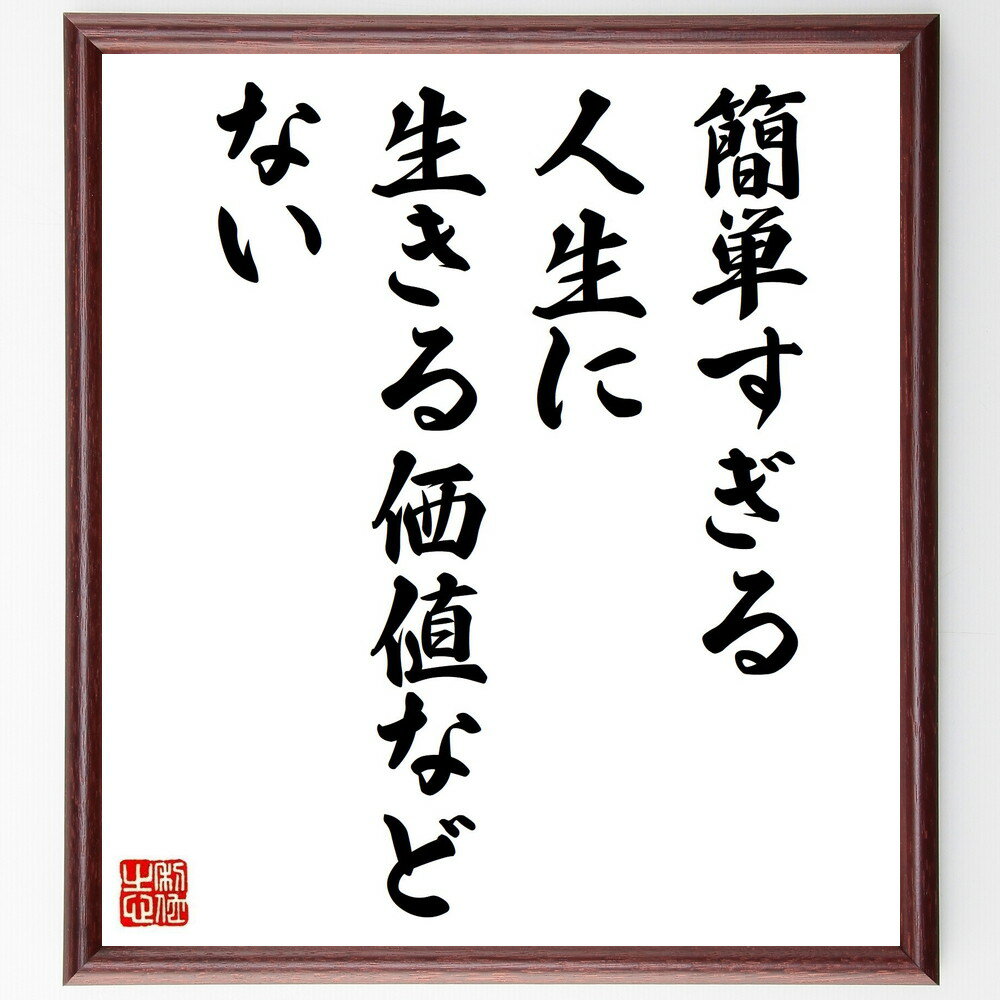 簡単すぎる
人生に
生きる価値など
ない